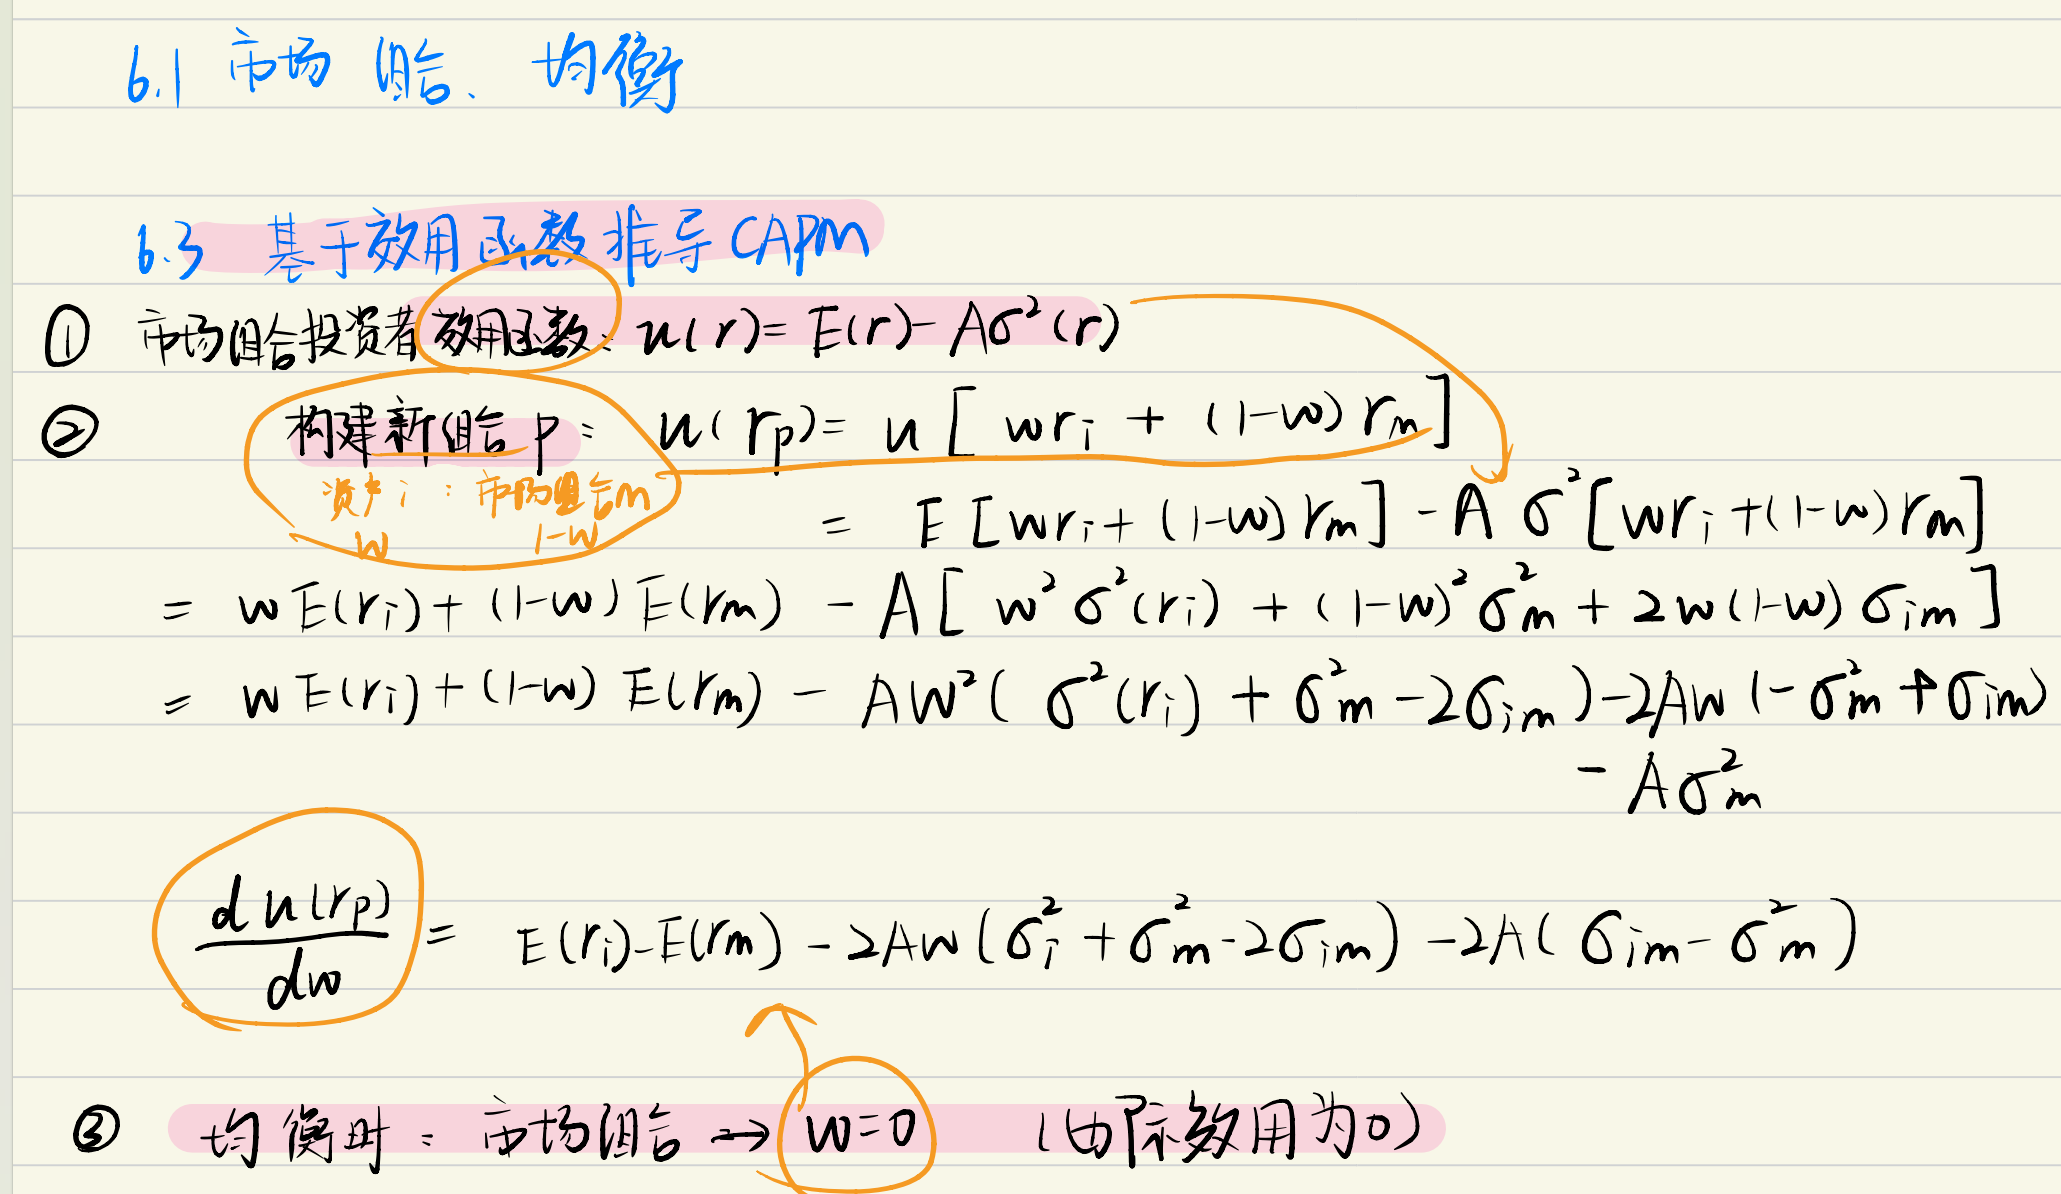 6.1 市场组合、均衡
6.3 基于效用函数推导CAPM
① 市场组合投资者效用函数: u(r)= E(r)- Aσ²(r)
② 构建新组合 p: u(rp)= u[ wri + (1-w) rm]
资产i : 市场组合m
w 1-w
= E[wri+(1-w)rm] - A σ²[wri+(1-w)rm]
= wE(ri)+(1-w)E(rm) - A[ w²σ²(ri) + (1-w)²σ²m + 2w(1-w)σim]
= wE(ri)+(1-w) E(rm) - Aw²( σ²(ri) + σ²m -2σim)-2Aw(-σ²m+σim)
- Aσ²m
du(rp)/dw = E(ri)-E(rm) - 2Aw(σ²i + σ²m-2σim) -2A( σim- σ²m)
③ 均衡时: 市场组合 → w=0 (边际效用为0)